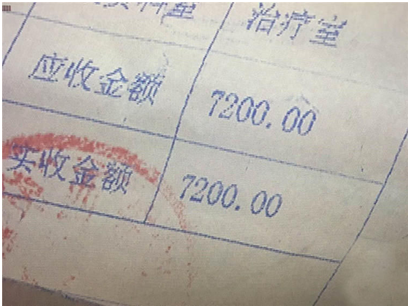 科室 治疗室
应收金额 7200.00
实收金额 7200.00